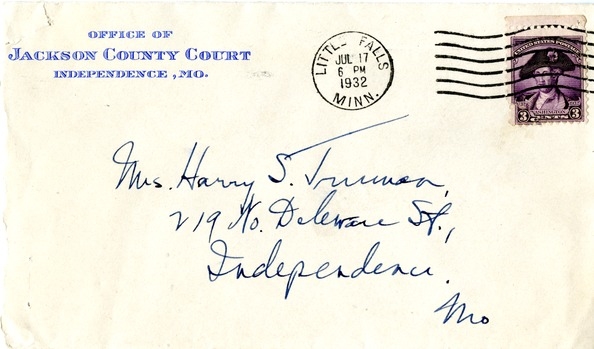 OFFICE OF
JACKSON COUNTY COURT
INDEPENDENCE, MO.
LITTLE FALLS
JUL 17
6 PM
1932
MINN.
UNITED STATES POSTAGE
WASHINGTON
3 CENTS 3
Mrs. Harry S. Truman,
219 No. Delaware St.,
Independence.
Mo